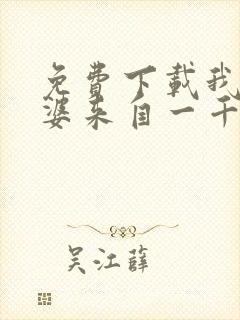 免費下載我
婆来自一千
吴江薛